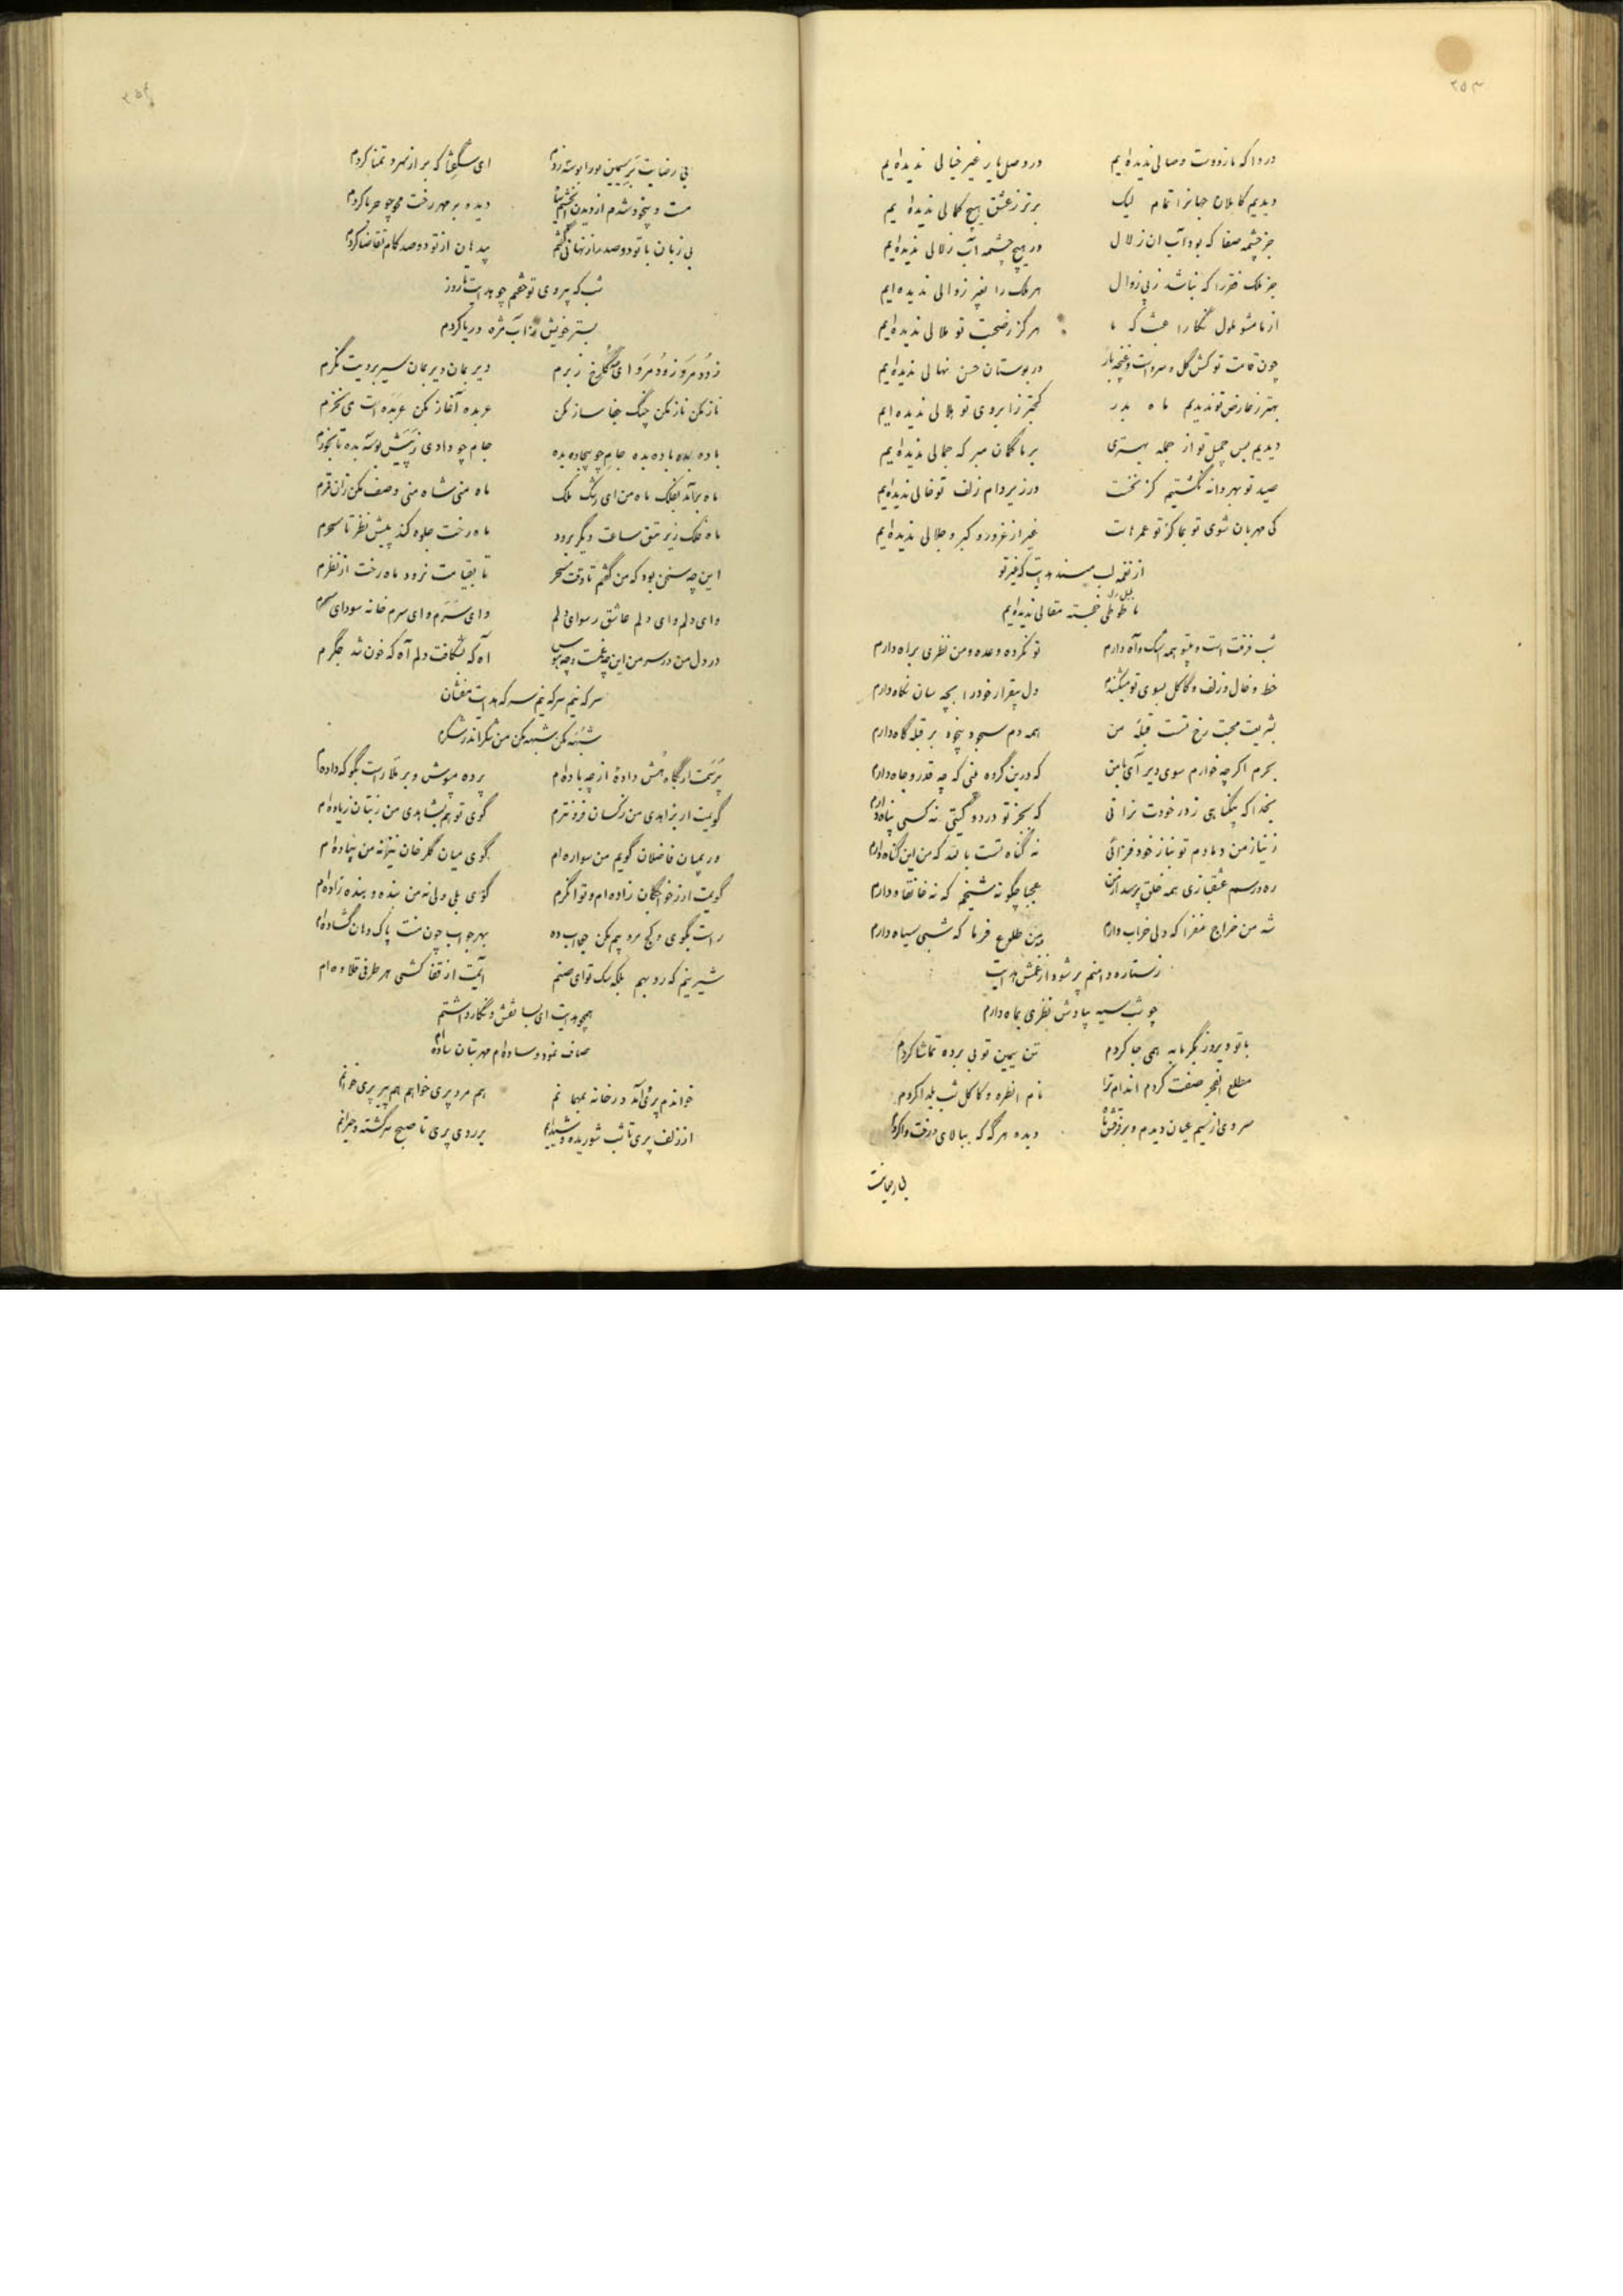 ۲۵۳
دردا که ما ز دوست وصالی ندیده‌ایم در وصل یار غیر خیالی ندیده‌ایم
دیدیم کاملان جهانرا تمام لیک برتر ز عشق هیچ کمالی ندیده ایم
جز چشمه صفا که بود آب ان زلال در هیچ چشمه آب زلالی ندیده‌ایم
جز ملک فقر را که نباشد زپی زوال هر ملک را بغیر زوالی ندیده ایم
از ما مشو ملول نگارا عبث که ما هرگز ز صحبت تو ملالی ندیده‌ایم
چون قامت تو کش گل و سرو است و غنچه بار در بوستان حسن نهالی ندیده‌ایم
بهتر ز عارض تو ندیدیم ماه بدر کمتر ز ابروی تو هلالی ندیده ایم
دیدیم بس جمیل تو از جمله بهتری بر ما گمان مبر که جمالی ندیده‌ایم
صید تو بهر دانه نگشتیم کز نخست در زیر دام زلف تو خالی ندیده‌ایم
کی مهربان شوی تو بما کز تو عمرهاست غیر از غرور و کبر و جلالی ندیده‌ایم
از نغمه لب مبند هدایت که غیر تو
ما طوطی خجسته مقالی ندیده‌ایم
شب فرقت است و بیتو همه اشک و آه دارم تو نکرده وعده و من نظری براه دارم
خط و خال و زلف و کاکل بسوی تو میکشندم دل بیقرار خود را بچه سان نگاه دارم
بشریعت محبت رخ تست قبله من همه دم سجود بیخود بر قبله گاه دارم
بحرم اگرچه خوارم سوی دیر آی با من که درین گروه بینی که چه قدر و جاه دارم
بخدا که بیگناهی ز در خودت نرانی که بجز تو در دو گیتی نه کسی پناه دارم
ز نیاز من دمادم تو بناز خود فزائی نه گناه تست بالله که من این گناه دارم
ره و رسم عشقبازی همه خلق پرسد از من عجبا چگونه شیخم که نه خانقاه دارم
شه من خراج مفزا که دلی خراب دارم مه من طلوع فرما که شبی سیاه دارم
ز ستاره دامنم پر شود از غمش هدایت
چو شب سیه بیادش نظری بماه دارم
با تو دیروز بگرمابه همی جا کردم تن سیمین تو بی برده تماشا کردم
مطلع الفجر صفت کردم اندام ترا نام انطره و کاکل شب یلدا کردم
سروی از سیم عیان دیدم و بر فرقش ماه دیده هر گه که ببالای و رخت وا کردم
بی رضایت
بی رضایت بر سیمین ورا بوسه زدم ای بسا که بر از تمنا کردم
مست و بیخود شدم از دیدن دیده بر مهر رخت محو چو حربا کردم
بی زبان با تو دو صد راز نهانی گفتم بیدهان از تو دو صد کام تقاضا کردم
شب که بیروی تو خفتم چو هدایت تا روز
بستر خویش ز آب مژه دریا کردم
زود مرو زود مرو ای مه گلرخ ز برم دیر بمان دیر بمان سیر برویت نگرم
ناز مکن ناز مکن چنگ جفا ساز مکن عربده آغاز مکن عربده است می نخرم
باده بده باده بده جام چو بیجاده بده جام چو دادی ز پیش بوسه بده تا بخورم
ماه برآمد بفلک ماه من ای رشک ملک ماه منی شاه منی وصف مکن زان قمرم
ماه فلک زیر تتق ساعت دیگر برود ماه رخت جلوه کند پیش نظر تا سحرم
این چه سخن بود که من گفتم تا وقت سحر تا بقیامت نرود ماه رخت از نظرم
وای دلم وای دلم عاشق رسوای دلم وای سرم وای سرم خانه سودای سرم
در دل من در سر من این چه غمست و چه هوس آه که بشکافت دلم آه که خون شد جگرم
سرکه نیم سرکه نیم سرکه هدایت مفشان
شبهه مکن شبهه مکن من شکر اندر شکرم
پرسمت ار نگاه مش داده از چه باده‌ام پرده مپوش و بر ملا راست بگو که داده‌ام
گویمت ار بزاهدی من ز کسان فزونترم گوی تو هم بشاهدی من ز بتان زیاده‌ام
ور بمیان فاضلان گویم من سواره‌ام گوی میان گلرخان نیز نه من پیاده‌ام
گویمت ار ز خواجگان زاده‌ام و توانگرم گوی بلی ولی نه من بنده و بنده زاده‌ام
راست بگوی و کج مرو بیم مکن جواب ده بهر جواب چون منت پاک دهان گشاده‌ام
شیر نیم که رو نهم بلکه سگ توای صنم آیمت از قفا کشی هر طرفی قلاده‌ام
همچو هدایت ای بسا نقش و نگار داشتم
صاف نمود و ساده‌ام مهر بتان ساده‌ام
خواندم پری آمد در خانه بمهمانم هم مرد پری خواهم هم پیر پری خوانم
از زلف پری تا شب شوریده و شیدایم بر روی پری تا صبح سرگشته و حیرانم